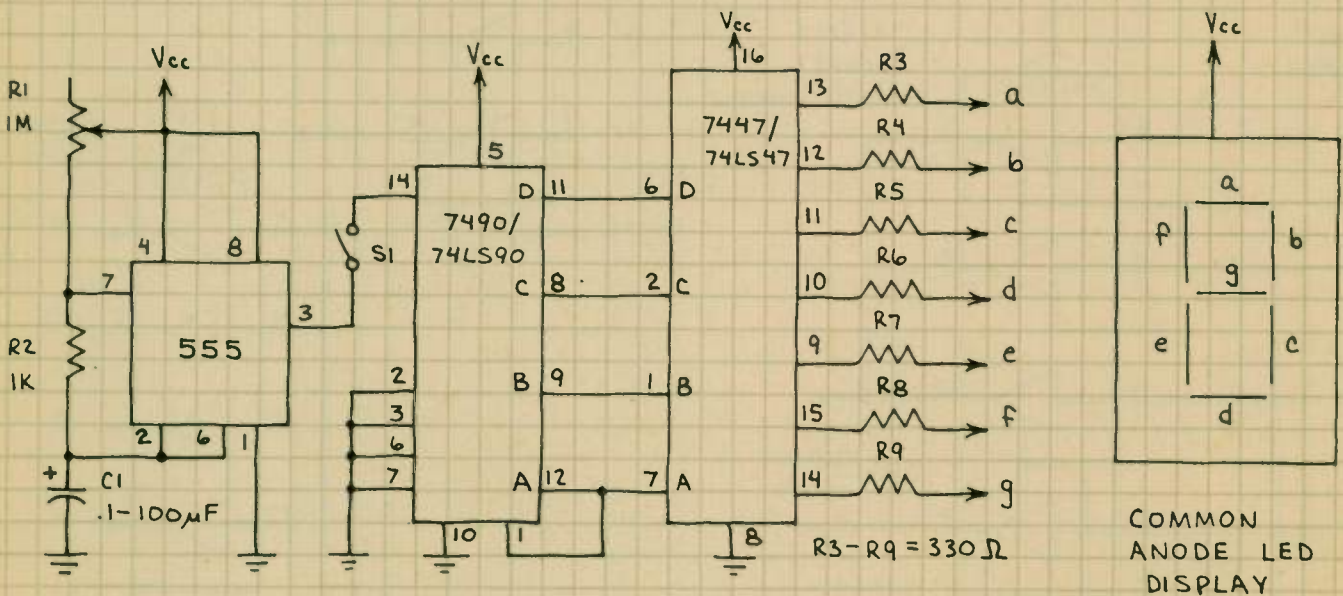 R1
1M
Vcc
4
8
7
3
555
R2
1K
2
6
1
+
C1
.1-100µF
S1
Vcc
5
14
7490/
74LS90
D
11
C
8
B
9
A
12
2
3
6
7
10
1
Vcc
16
7447/
74LS47
6
D
2
C
1
B
7
A
8
13
R3
a
12
R4
b
11
R5
c
10
R6
d
9
R7
e
15
R8
f
14
R9
g
R3-R9 = 330 Ω
Vcc
a
f
b
g
e
c
d
COMMON
ANODE LED
DISPLAY